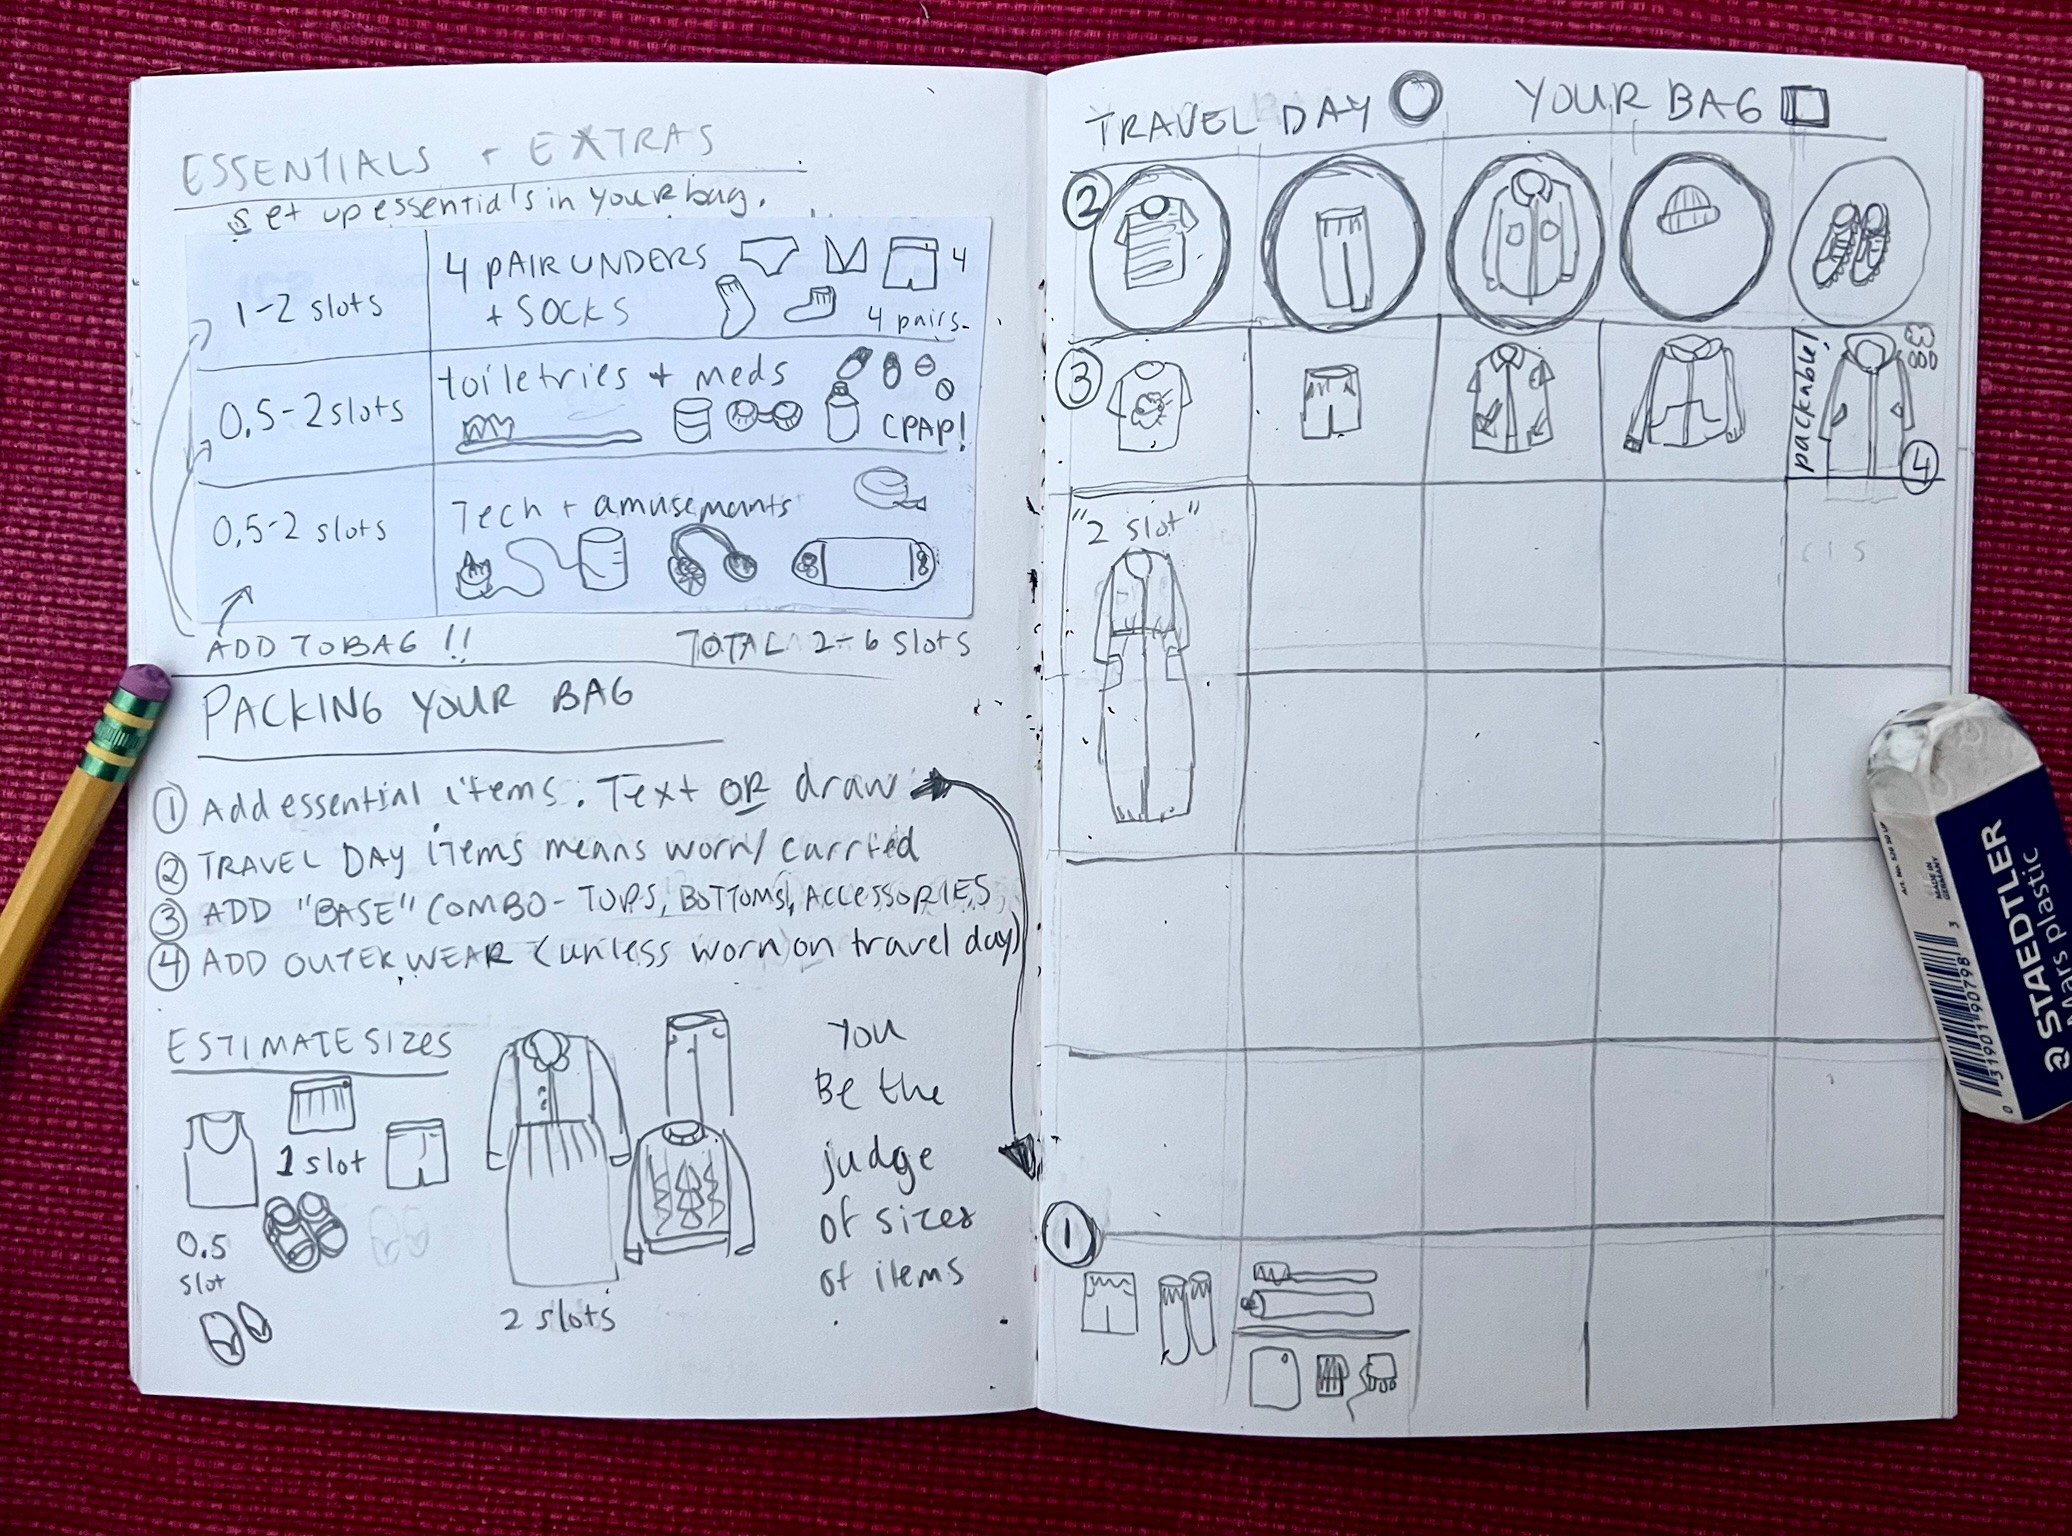 ESSENTIALS + EXTRAS
Set up essentials in your bag.
1-2 slots
4 PAIR UNDERS
+ SOCKS
4
4 pairs.
0.5-2 slots
toiletries + meds
CPAP!
0.5-2 slots
Tech + amusements
ADD TO BAG !!
TOTAL 2-6 slots
PACKING YOUR BAG
① Add essential items. Text OR draw
② TRAVEL DAY items means worn/carried
③ ADD "BASE" COMBO- TOPS, BOTTOMS, ACCESSORIES
④ ADD OUTERWEAR (unless worn on travel day)
ESTIMATE SIZES
1 slot
0.5
slot
2 slots
You
Be the
judge
of sizes
of items
TRAVEL DAY
YOUR BAG
②
③
packable!
④
"2 slot"
①
STAEDTLER
Mars plastic
MADE IN
GERMANY